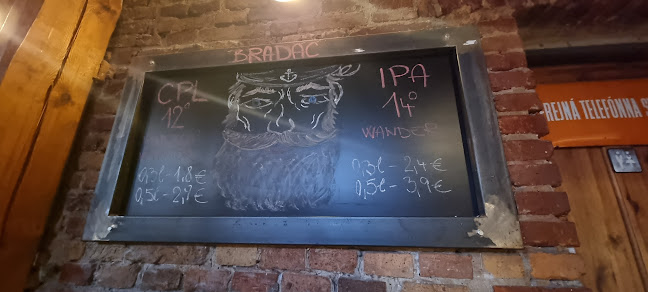 BRADAČ
CPL
12°
0,3l - 1,8 €
0,5l - 2,7 €
IPA
14°
WANDER
0,3l - 2,4 €
0,5l - 3,9 €
REJNÁ TELEFÓNNA S